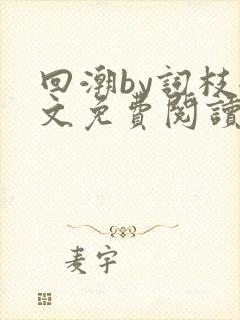 回潮by詞枝
文免費閱讀
麦宇